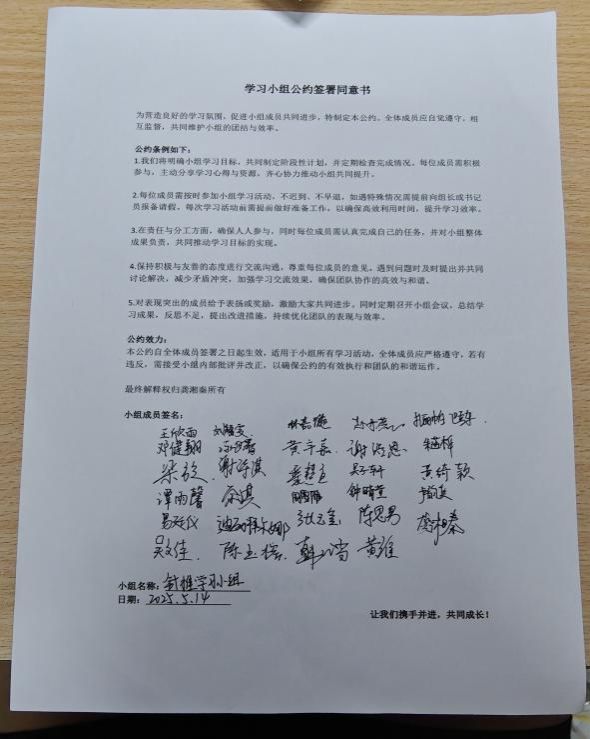 学习小组公约签署同意书
为营造良好的学习氛围，促进小组成员共同进步，特制定本公约。全体成员应自觉遵守，相
互监督，共同维护小组的团结与效率。
公约条例如下：
1.我们将明确小组学习目标，共同制定阶段性计划，并定期检查完成情况。每位成员需积极
参与，主动分享学习心得与资源，齐心协力推动小组共同提升。
2.每位成员需按时参加小组学习活动，不迟到、不早退，如遇特殊情况需提前向组长或书记
员报备请假。每次学习活动前需提前做好准备工作，以确保高效利用时间，提升学习效率。
3.在责任与分工方面，确保人人参与，同时每位成员需认真完成自己的任务，并对小组整体
成果负责，共同推动学习目标的实现。
4.保持积极与友善的态度进行交流沟通，尊重每位成员的意见，遇到问题时及时提出并共同
讨论解决，减少矛盾冲突，加强学习交流效果，确保团队协作的高效与和谐。
5.对表现突出的成员给予表扬或奖励，激励大家共同进步。同时定期召开小组会议，总结学
习成果，反思不足，提出改进措施，持续优化团队的表现与效率。
公约效力：
本公约自全体成员签署之日起生效，适用于小组所有学习活动，全体成员应严格遵守，若有
违反，需接受小组内部批评并改正，以确保公约的有效执行和团队的和谐运作。
最终解释权归龚湘秦所有
小组成员签名：
王欣雨
邓健翔 黄宇嘉
梁旋 黄绮颖
谭雨馨 钟晴萱
易廷仪 陈思男 龚湘秦
吴文佳 黄维
小组名称：针推学习小组
日期：2025.5.14
让我们携手并进，共同成长！